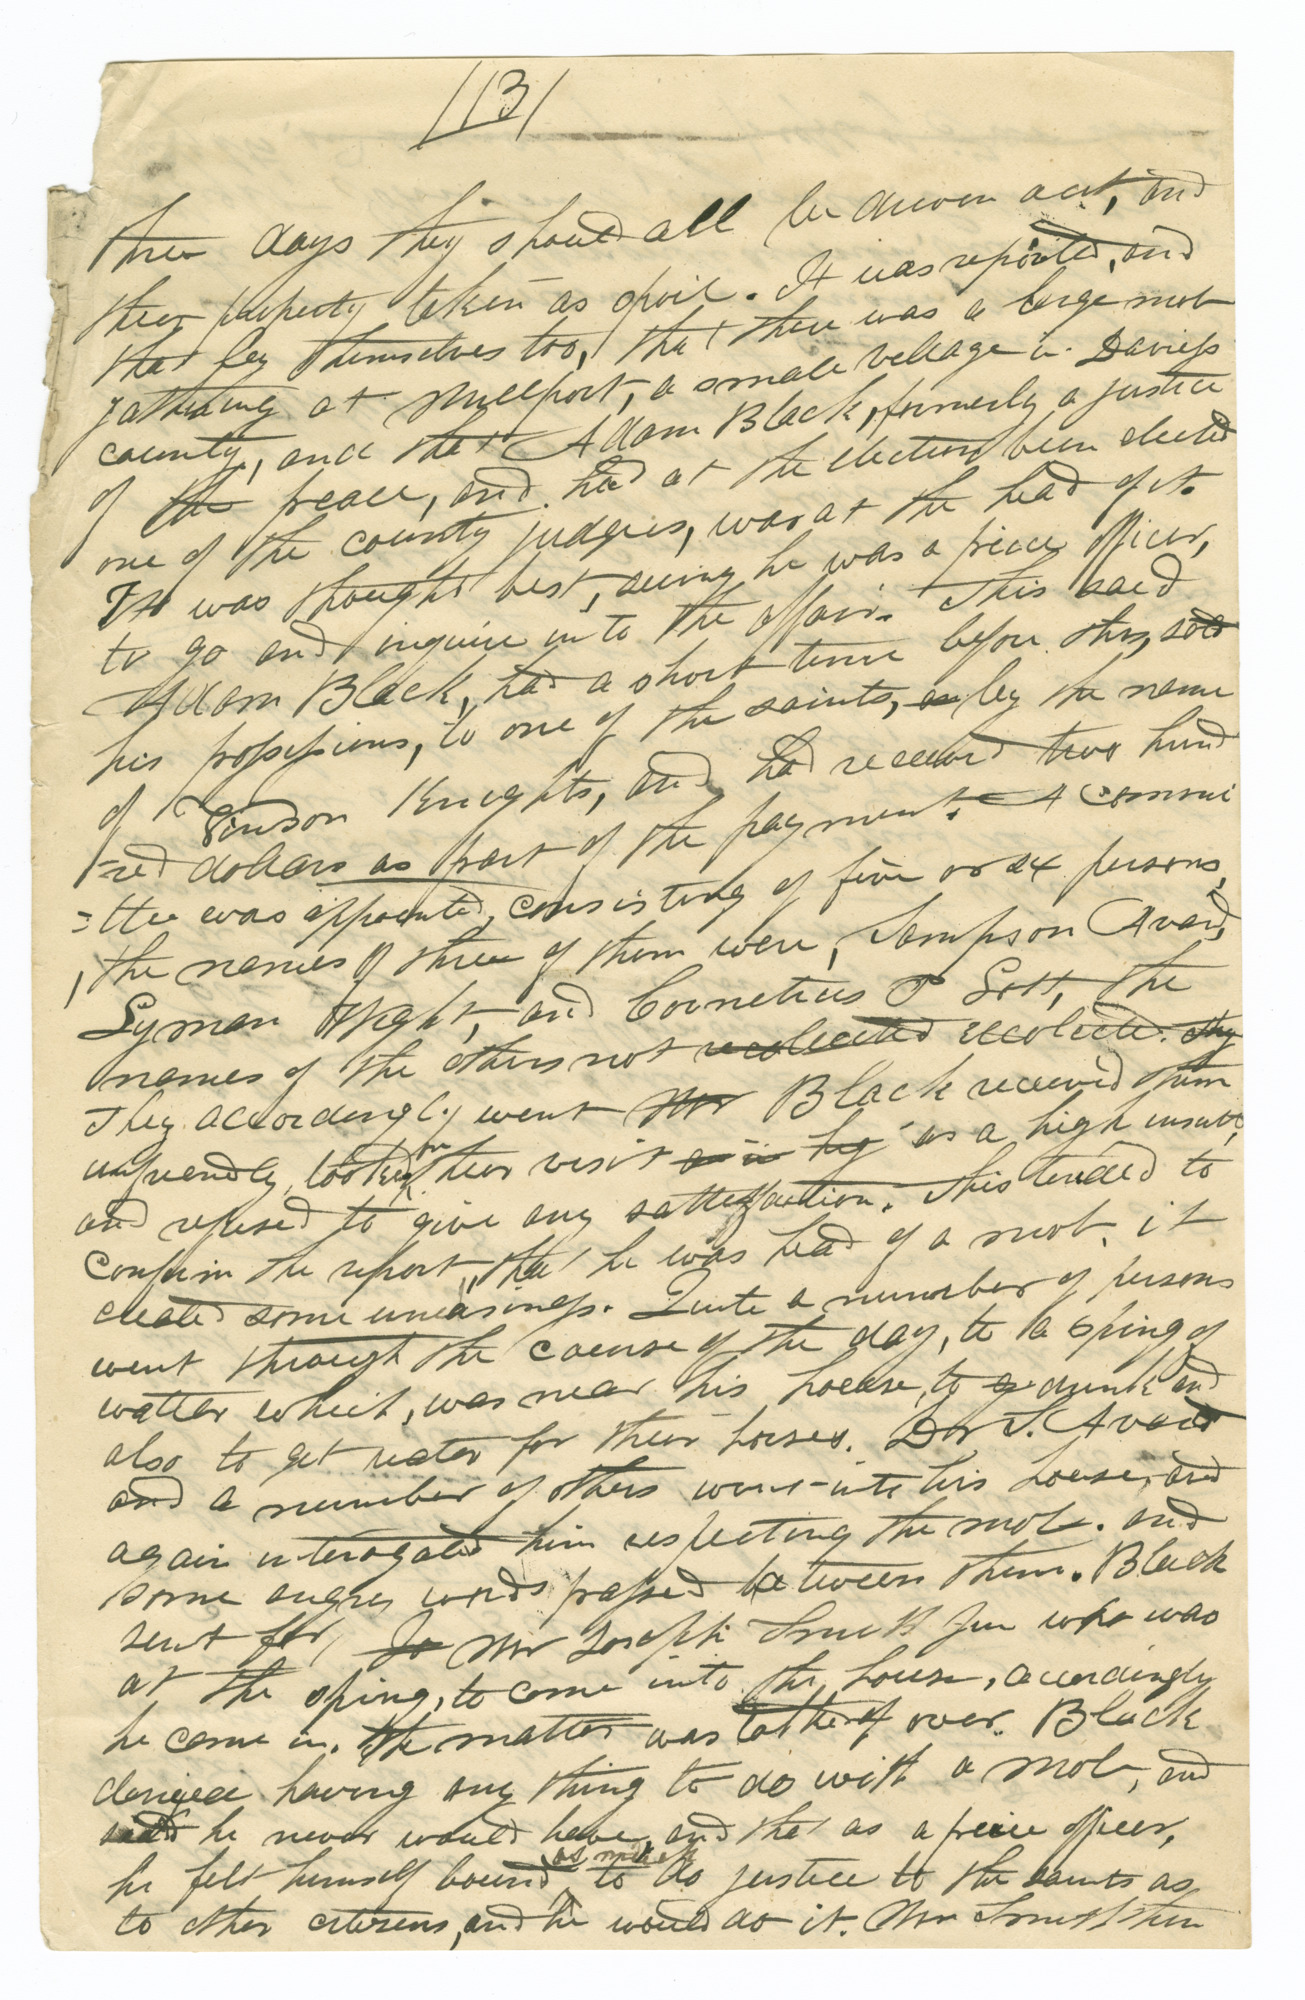 /13/
three days they should all be driven out, and
their property taken as spoil. It was reported, and
that by themselves too, that there was a large mob
gathering at Millport, a small village in Daviess
county, and that Adam Black, formerly a justice
of the peace, and had at the election been elected
one of the county judges, was at the head of it.
It was thought best, seeing he was a peice officer,
to go and inquire into the affair. This said
Adam Black, had a short time before this, sold
his possessions, to one of the saints, by the name
of Vinson Knights, and had received two hund
-red dollars as part of the payment. A commi
=ttee was appointed, consisting of five or six persons,
the names of three of them were, Sampson Avard,
Lyman Wight, and Cornelius P Lott, the
names of the others not recolected recolected. they
They accordingly went Mr Black received them
unfriendly, looked on their visit as a high insult,
and refused to give any sattisfaction. This tended to
confirm the report, that he was head of a mob. it
created some uneasiness. Quite a number of persons
went through the course of the day, to a spring of
watter which, was near his house, to drink and
also to get water for their horses. Dr. S. Avard
and a number of others went into his house, and
again interogated him respecting the mob. and
some angry words passed between them. Black
sent for, Jo Mr Joseph Smith Jun who was
at the spring, to come into the house, accordingly
he came in. the matter was talked over. Black
denyed having any thing to do with a mob, and
said he never would have, and that as a peice officer,
he felt himself bound as much to do justice to the saints as
to other citizens, and he would do it. Mr Smith then